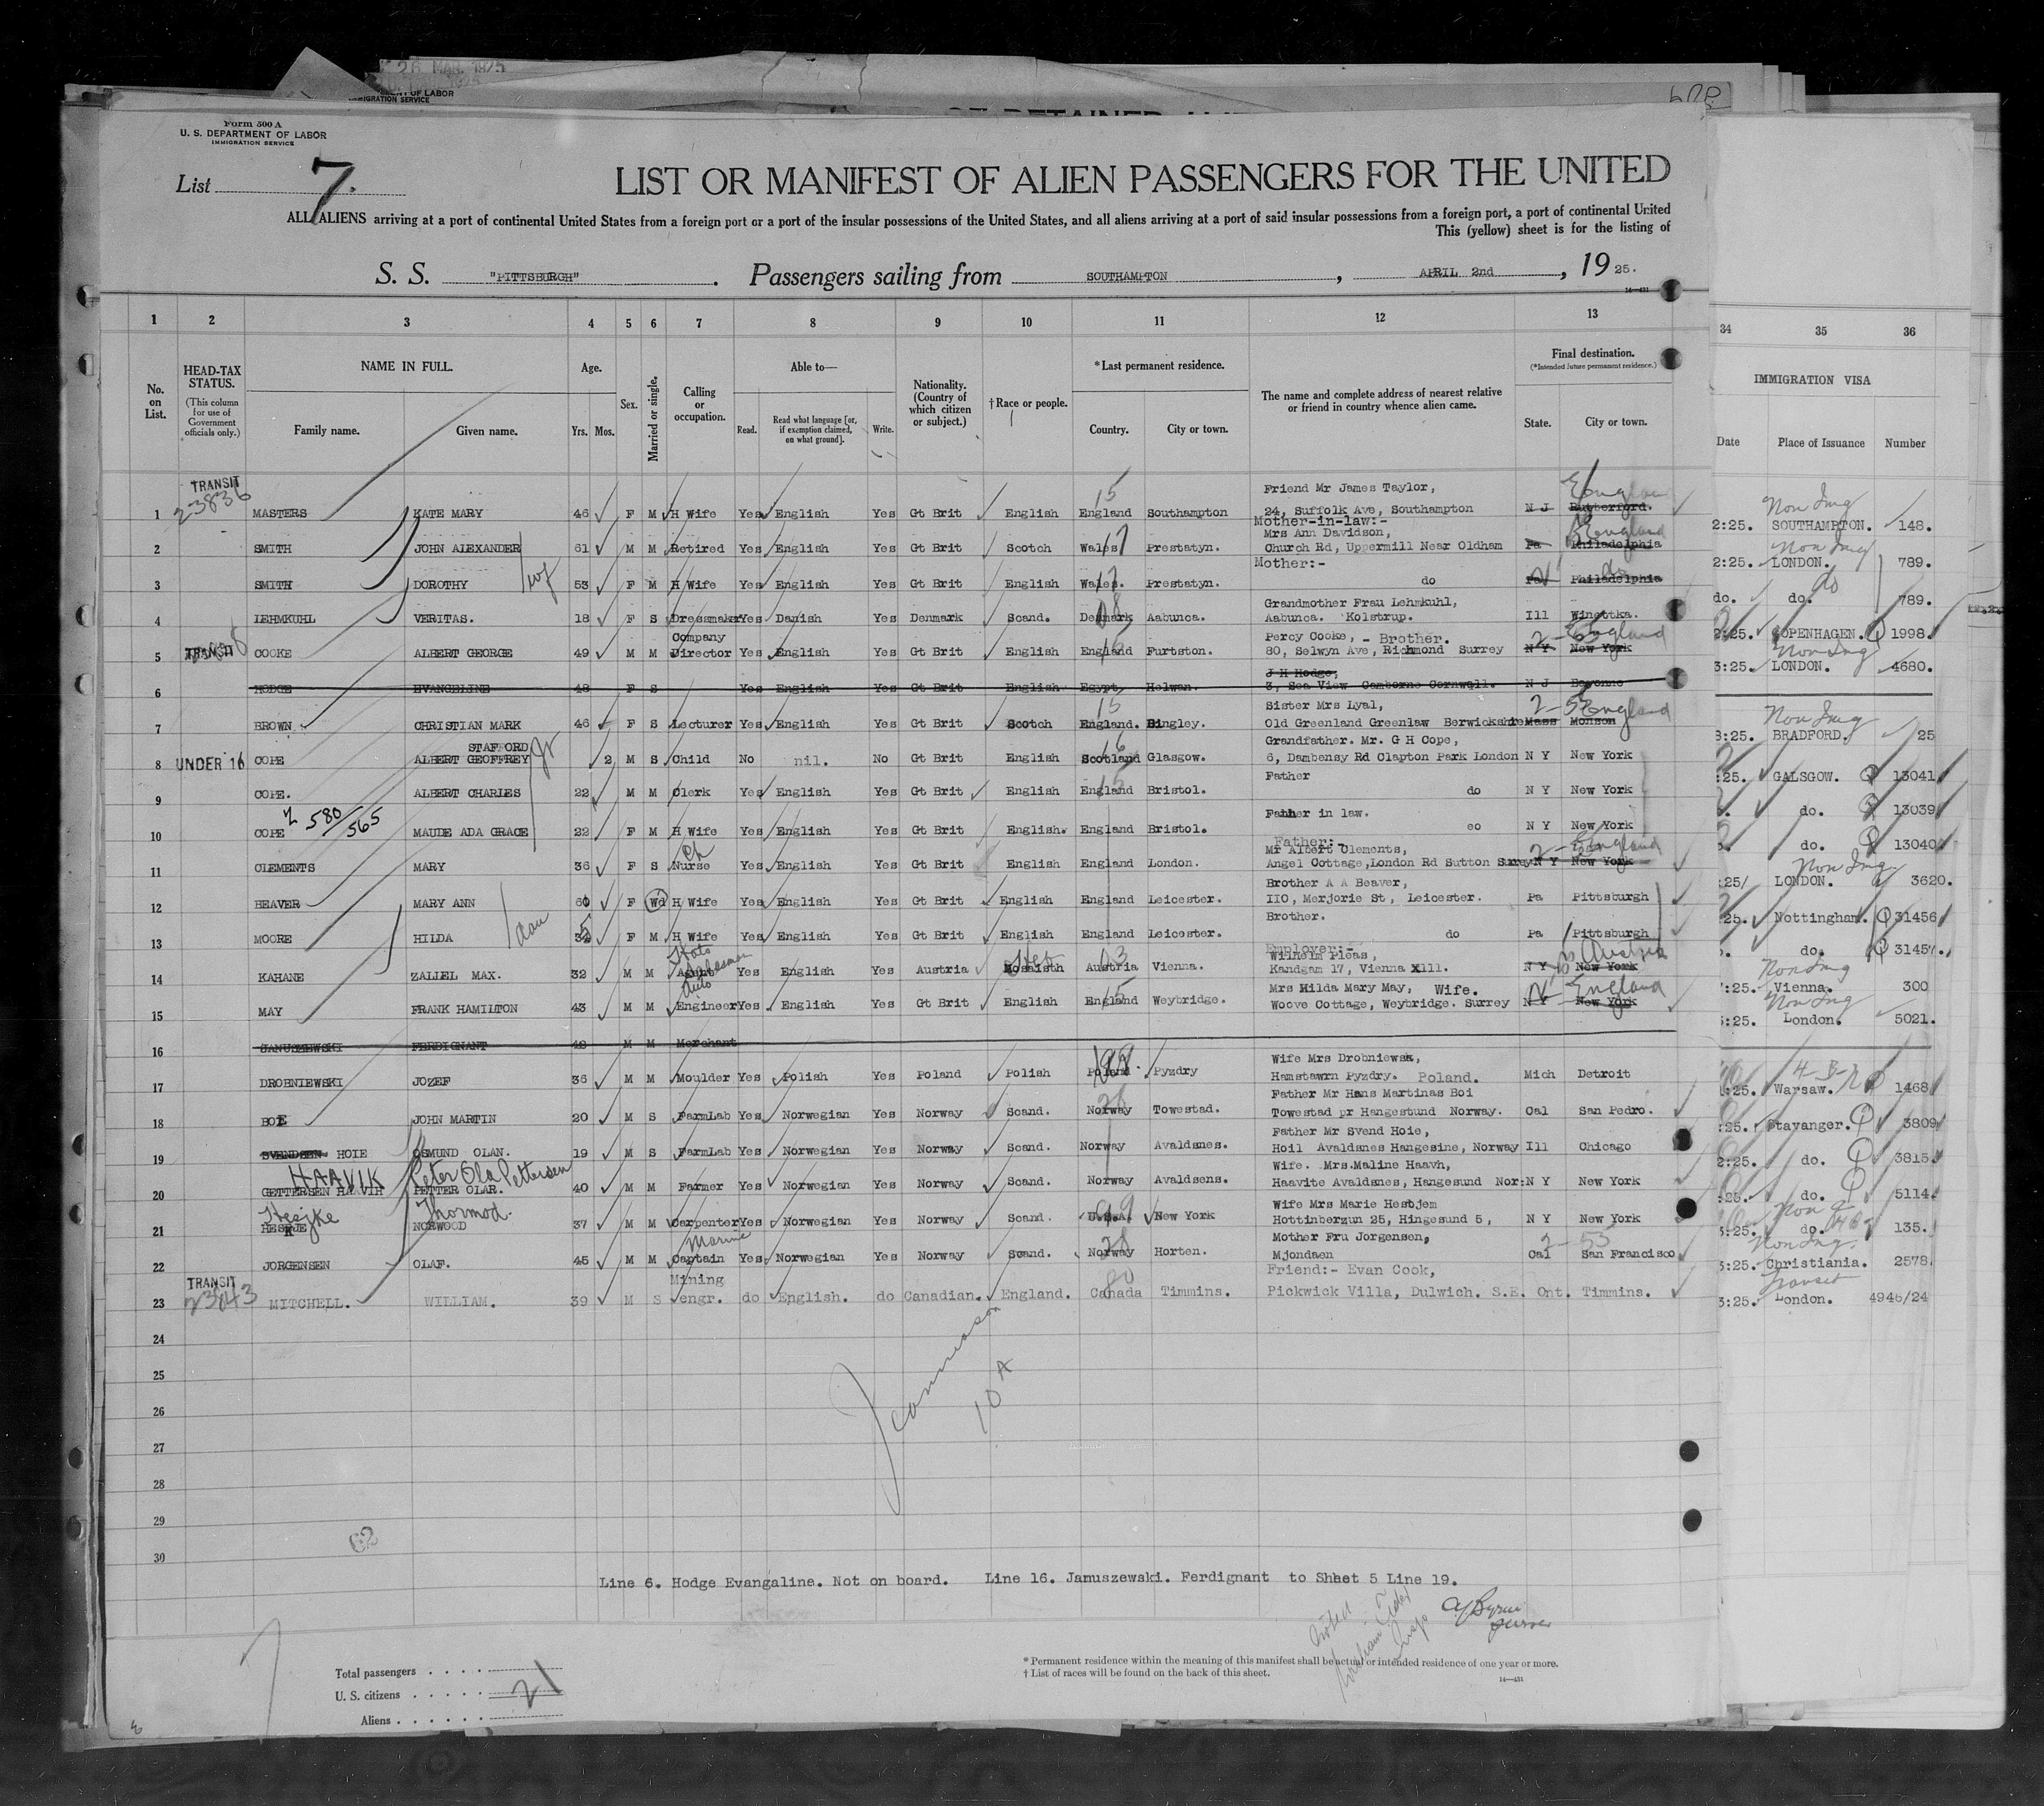 26 MAR. 1925
MENT OF LABOR
IMMIGRATION SERVICE
Form 500 A
U. S. DEPARTMENT OF LABOR
IMMIGRATION SERVICE
List 7.
LIST OR MANIFEST OF ALIEN PASSENGERS FOR THE UNITED
ALL ALIENS arriving at a port of continental United States from a foreign port or a port of the insular possessions of the United States, and all aliens arriving at a port of said insular possessions from a foreign port, a port of continental United
This (yellow) sheet is for the listing of
S. S. "PITTSBURGH". Passengers sailing from SOUTHAMPTON, APRIL 2nd, 1925.
14—431
1 2 3 4 5 6 7 8 9 10 11 12 13 34 35 36
No. on List.
HEAD-TAX STATUS.
(This column for use of Government officials only.)
NAME IN FULL.
Family name. Given name.
Age.
Yrs. Mos.
Sex.
Married or single.
Calling or occupation.
Able to—
Read. Read what language [or, if exemption claimed, on what ground]. Write.
Nationality. (Country of which citizen or subject.)
†Race or people.
*Last permanent residence.
Country. City or town.
The name and complete address of nearest relative or friend in country whence alien came.
Final destination.
(*Intended future permanent residence.)
State. City or town.
IMMIGRATION VISA
Date Place of Issuance Number
TRANSIT
23836
15 Friend Mr James Taylor, England Non Img
1 MASTERS KATE MARY 46 F M H Wife Yes English Yes Gt Brit English England Southampton 24, Suffolk Ave, Southampton N J Rutherford. 2:25. SOUTHAMPTON. 148.
Mother-in-law:-
Mrs Ann Davidson, England Non Img
2 SMITH JOHN ALEXANDER 61 M M Retired Yes English Yes Gt Brit Scotch Wales Prestatyn. Church Rd, Uppermill Near Oldham Pa Philadelphia 2:25. LONDON. 789.
Mother:-
3 SMITH DOROTHY wf 53 F M H Wife Yes English Yes Gt Brit English Wales. Prestatyn. do Pa Philadelphia do do. do. do 789.
Grandmother Frau Lehmkuhl,
4 LEHMKUHL VERITAS. 18 F S Dressmaker Yes Danish Yes Denmark Scand. Denmark Aabunca. Aabunca. Kolstrup. Ill Winettka. 2:25. COPENHAGEN. 1998.
Company Percy Cooke, - Brother. 2-53 England Non Img
5 TRANSIT COOKE ALBERT GEORGE 49 M M Director Yes English Yes Gt Brit English England Furtston. 80, Selwyn Ave, Richmond Surrey N Y New York 3:25. LONDON. 4680.
J H Hodge,
6 HODGE EVANGELINE 48 F S Yes English Yes Gt Brit English Egypt Helwan. 3, Sea View Camborne Cornwall. N J Bayonne
15 Sister Mrs Lyal, 2-53 England Non Img
7 BROWN CHRISTIAN MARK 46 F S Lecturer Yes English Yes Gt Brit Scotch England. Bingley. Old Greenland Greenlaw Berwickshire Mass Monson 3:25. BRADFORD. 25
STAFFORD Grandfather. Mr. G H Cope,
8 UNDER 16 COPE ALBERT GEOFFREY Jr 2 M S Child No nil. No Gt Brit English Scotland Glasgow. 6, Dambensy Rd Clapton Park London N Y New York :25. GALSGOW. 13041
Father
9 COPE. ALBERT CHARLES 22 M M Clerk Yes English Yes Gt Brit English England Bristol. do N Y New York do. 13039
580/565 Father in law.
10 COPE MAUDE ADA GRACE 22 F M H Wife Yes English Yes Gt Brit English. England Bristol. eo N Y New York do. 13040
Father:-
Mr Albert Clements, 2-England Non Img
11 CLEMENTS MARY 36 F S Nurse Yes English Yes Gt Brit English England London. Angel Cottage, London Rd Sutton Surrey N Y New York :25/ LONDON. 3620.
Brother A A Beaver,
12 BEAVER MARY ANN 60 F Wd H Wife Yes English Yes Gt Brit English England Leicester. 110, Merjorie St, Leicester. Pa Pittsburgh :25. Nottingham. 31456
Brother.
13 MOORE HILDA dau 35 F M H Wife Yes English Yes Gt Brit English England Leicester. do Pa Pittsburgh do. 31457.
Employer:-
Wilhelm Pleas, Austria Non Img
14 KAHANE ZALLEL MAX. 32 M M Agent Yes English Yes Austria Mosaisth Heb Austria Vienna. Kandgam 17, Vienna Xlll. N Y New York :25. Vienna. 300
Auto Mrs Hilda Mary May, Wife. England Non Img
15 MAY FRANK HAMILTON 43 M M Engineer Yes English Yes Gt Brit English England Weybridge. Woove Cottage, Weybridge. Surrey N Y New York :25. London. 5021.
16 JANUSZEWSKI FERDIGNANT 48 M M Merchant
Wife Mrs Drobniewsk,
17 DROBNIEWSKI JOZEF 36 M M Moulder Yes Polish Yes Poland Polish Poland Pyzdry Hamstawrn Pyzdry. Poland. Mich Detroit :25. Warsaw. 1468
Father Mr Hans Martinas Boi
18 BOE JOHN MARTIN 20 M S FarmLab Yes Norwegian Yes Norway Scand. Norway Towestad. Towestad pr Hangestund Norway. Cal San Pedro. :25. Stavanger. 3809
Father Mr Svend Hoie,
19 SVENDSEN HOIE OSMUND OLAN. 19 M S FarmLab Yes Norwegian Yes Norway Scand. Norway Avaldsnes. Hoil Avaldsnes Hangesine, Norway Ill Chicago 2:25. do. 3815
HAAVIK Peter Ola Pettersen Wife. Mrs.Maline Haavh,
20 GETTERSEN HAAVIH PETTER OLAR. 40 M M Farmer Yes Norwegian Yes Norway Scand. Norway Avaldsens. Haavite Avaldsnes, Hangesund Nor: N Y New York :25. do. 5114.
Hesjke Thormod. Wife Mrs Marie Hesbjem
21 NORWOOD 37 M M Carpenter Yes Norwegian Yes Norway Scand. U.S.A. New York Hottinbergun 25, Hingesund 5, N Y New York 3:25. do. 135.
Marine 28 Mother Fru Jorgensen, 2-53 Non Img.
22 JORGENSEN OLAF. 45 M M Captain Yes Norwegian Yes Norway Scand. Norway Horten. Mjondaen Cal San Francisco 3:25. Christiania. 2578.
TRANSIT Mining 80 Friend:- Evan Cook, Transit
23 23843 MITCHELL. WILLIAM. 39 M S engr. do English. do Canadian. England. Canada Timmins. Pickwick Villa, Dulwich. S.E. Ont. Timmins. 3:25. London. 4946/24
24
25
10 A
26
27
28
29
62
30
Line 6. Hodge Evangaline. Not on board. Line 16. Januszewski. Ferdignant to Shhet 5 Line 19.
Total passengers
U. S. citizens 21
Aliens
* Permanent residence within the meaning of this manifest shall be actual or intended residence of one year or more.
† List of races will be found on the back of this sheet.
14—431